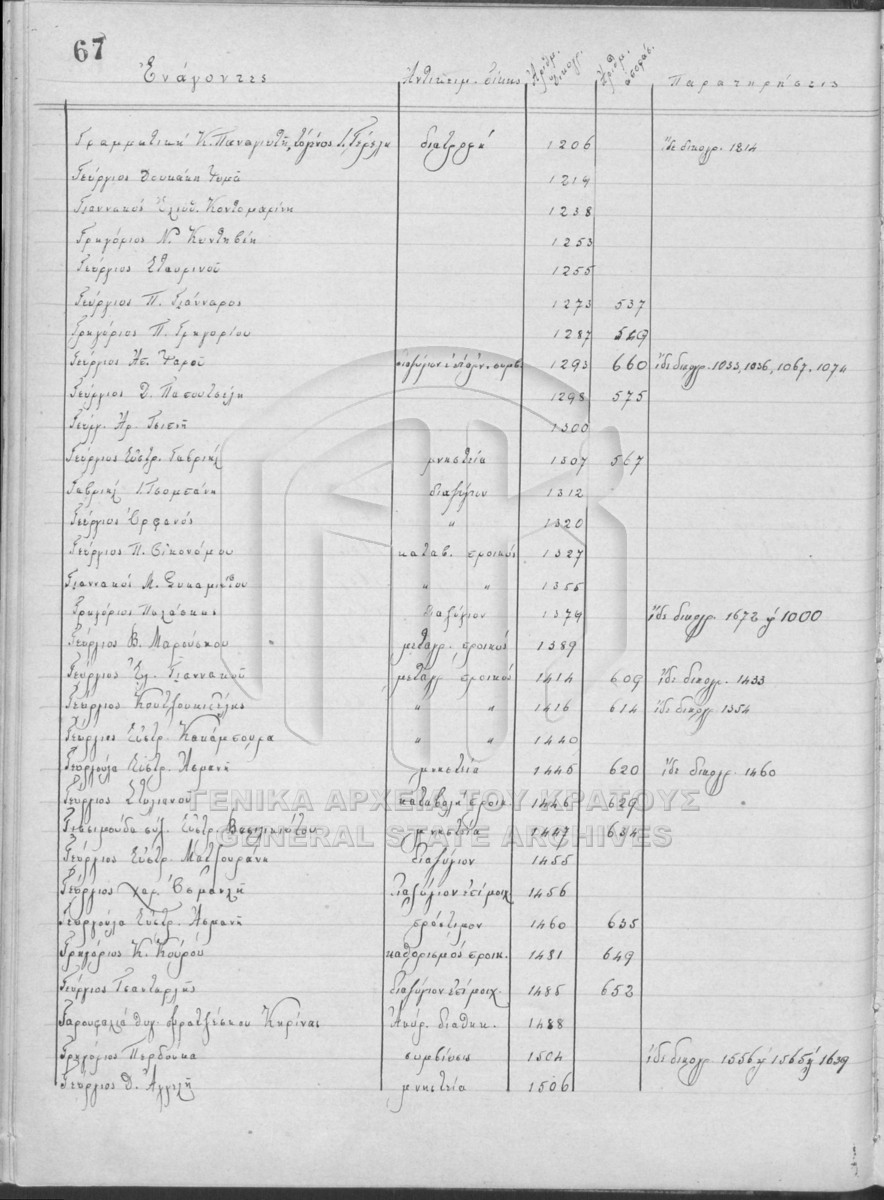 67
Ἐνάγοντες Ἀντικειμ. δίκης Ἀριθμ. δικογρ. Ἀριθμ. ἀποφάσ. Παρατηρήσεις
Γραμματική Κ. Παναγιώτη, Ι. διατροφή 1206 ἴδε δικογρ. 1214
Γεώργιος Δουκάκη Ψυμᾶ 1219
Γιαννακός Ἐλευθ. Κοντομαρίνη 1238
Γρηγόριος Ν. 1253
Γεώργιος Σταυρινοῦ 1255
Γεώργιος Π. Γιάνναρος 1273 537
Γρηγόριος Π. Γρηγορίου 1287 549
Γεώργιος Ἀπ. Ψαροῦ 1293 660 ἴδε δικογρ. 1033, 1036, 1067, 1074
Γεώργιος Δ. Παπουτσέλη 1298 575
Γεώργ. Ἀρ. Τσιπῆ 1300
Γεώργιος Εὐστρ. Γαβριήλ μνηστεία 1307 567
Γαβριήλ Ι. Τσομπάνη διαζύγιον 1312
Γεώργιος Ὀρφανός " 1320
Γεώργιος Π. Οἰκονόμου καταβ. προικός 1327
Γιαννακός Μ. Συκαμιώτου " " 1355
Γρηγόριος Παλάσκας διαζύγιον 1374 ἴδε δικογρ. 1672 ἤ 1000
Γεώργιος Β. Μαρούσκου μεταγρ. προικός 1389
Γεώργιος Ἐλ. Γιαννακοῦ μεταγρ. προικός 1414 609 ἴδε δικογρ. 1433
Γεώργιος Κουτζουκιπέλης " " 1416 614 ἴδε δικογρ. 1354
Γεώργιος Εὐστρ. Κακάμπουρα " " 1440
Γεωργούλα Εὐστρ. Ἀσμανῆ μνηστεία 1445 620 ἴδε δικογρ. 1460
Γεώργιος Στυλιανοῦ καταβολή προικ. 1446 629
Γιασιμούδα συζ. Εὐστρ. Βασιλικιώτου μνηστεία 1447 634
Γεώργιος Εὐστρ. Ματζουράνη διαζύγιον 1455
Γεώργιος Χαρ. Ὀσμανλῆ διαζύγιον ἐπί μοιχ. 1456
Γεωργούλα Εὐστρ. Ἀσμανῆ πρόστιμον 1460 635
Γρηγόριος Κ. Κουροῦ καθορισμός προικ. 1481 649
Γεώργιος Τσανταρλῆς διαζύγιον ἐπί μοιχ. 1485 652
Γαρουφαλιά θυγ. Φρατζέσκου Κηρίνας Ἀκύρ. διαθήκ. 1488
Γρηγόριος Περδίκα συμβίωσις 1504 ἴδε δικογρ. 1556 ἤ 1565 ἤ 1639
Γεώργιος Θ. Ἀγγελῆ μνηστεία 1506
ΓΕΝΙΚΑ ΑΡΧΕΙΑ ΤΟΥ ΚΡΑΤΟΥΣ
GENERAL STATE ARCHIVES